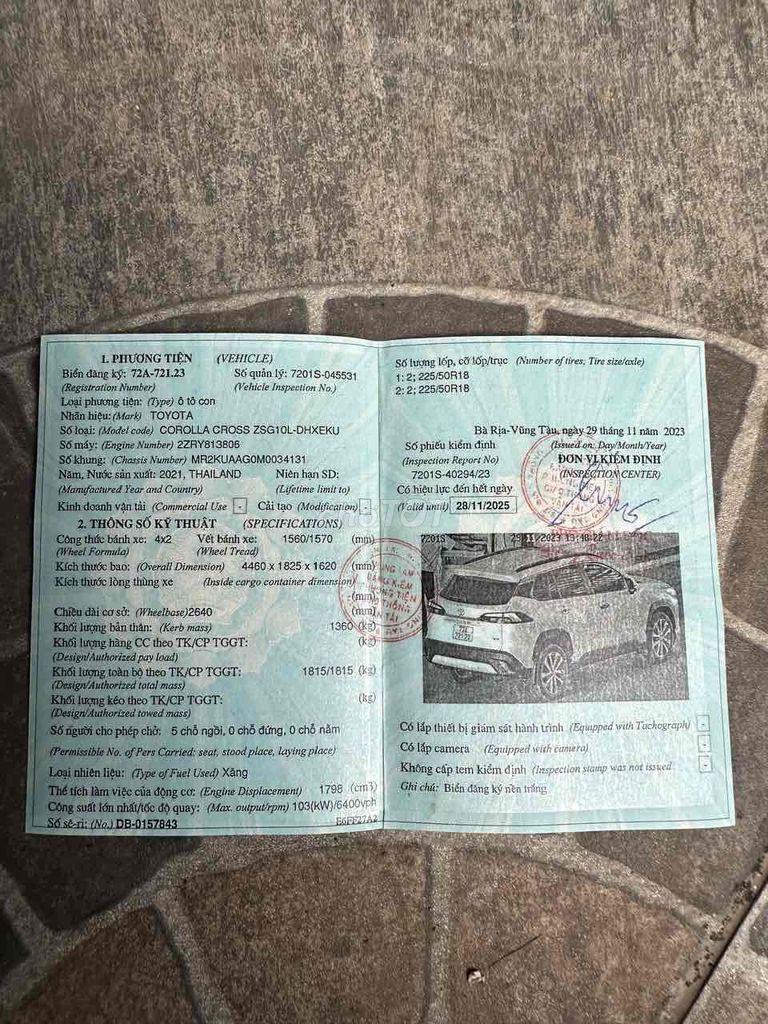 1. PHƯƠNG TIỆN (VEHICLE)
Biển đăng ký: 72A-721.23 Số quản lý: 7201S-045531
(Registration Number) (Vehicle Inspection No.)
Loại phương tiện: (Type) ô tô con
Nhãn hiệu: (Mark) TOYOTA
Số loại: (Model code) COROLLA CROSS ZSG10L-DHXEKU
Số máy: (Engine Number) 2ZRY813806
Số khung: (Chassis Number) MR2KUAAG0M0034131
Năm, Nước sản xuất: 2021, THAILAND Niên hạn SD:
(Manufactured Year and Country) (Lifetime limit to)
Kinh doanh vận tải (Commercial Use) - Cải tạo (Modification) -
2. THÔNG SỐ KỸ THUẬT (SPECIFICATIONS)
Công thức bánh xe: 4x2 Vết bánh xe: 1560/1570 (mm)
(Wheel Formula) (Wheel Tread)
Kích thước bao: (Overall Dimension) 4460 x 1825 x 1620 (mm)
Kích thước lòng thùng xe (Inside cargo container dimension)
(mm)
Chiều dài cơ sở: (Wheelbase)2640 (mm)
Khối lượng bản thân: (Kerb mass) 1360 (kg)
Khối lượng hàng CC theo TK/CP TGGT: (kg)
(Design/Authorized pay load)
Khối lượng toàn bộ theo TK/CP TGGT: 1815/1815 (kg)
(Design/Authorized total mass)
Khối lượng kéo theo TK/CP TGGT: (kg)
(Design/Authorized towed mass)
Số người cho phép chở: 5 chỗ ngồi, 0 chỗ đứng, 0 chỗ nằm
(Permissible No. of Pers Carried: seat, stood place, laying place)
Loại nhiên liệu: (Type of Fuel Used) Xăng
Thể tích làm việc của động cơ: (Engine Displacement) 1798 (cm3)
Công suất lớn nhất/tốc độ quay: (Max. output/rpm) 103(kW)/6400vph
Số sê-ri: (No.) DB-0157843 E6FF27A2
Số lượng lốp, cỡ lốp/trục (Number of tires; Tire size/axle)
1: 2; 225/50R18
2: 2; 225/50R18
Bà Rịa-Vũng Tàu, ngày 29 tháng 11 năm 2023
Số phiếu kiểm định (Issued on: Day/Month/Year)
(Inspection Report No) ĐƠN VỊ KIỂM ĐỊNH
7201S-40294/23 (INSPECTION CENTER)
Có hiệu lực đến hết ngày
(Valid until) 28/11/2025
7201S 29/11/2023 13:48:22
Có lắp thiết bị giám sát hành trình (Equipped with Tachograph) -
Có lắp camera (Equipped with camera) -
Không cấp tem kiểm định (Inspection stamp was not issued -
Ghi chú: Biển đăng ký nền trắng